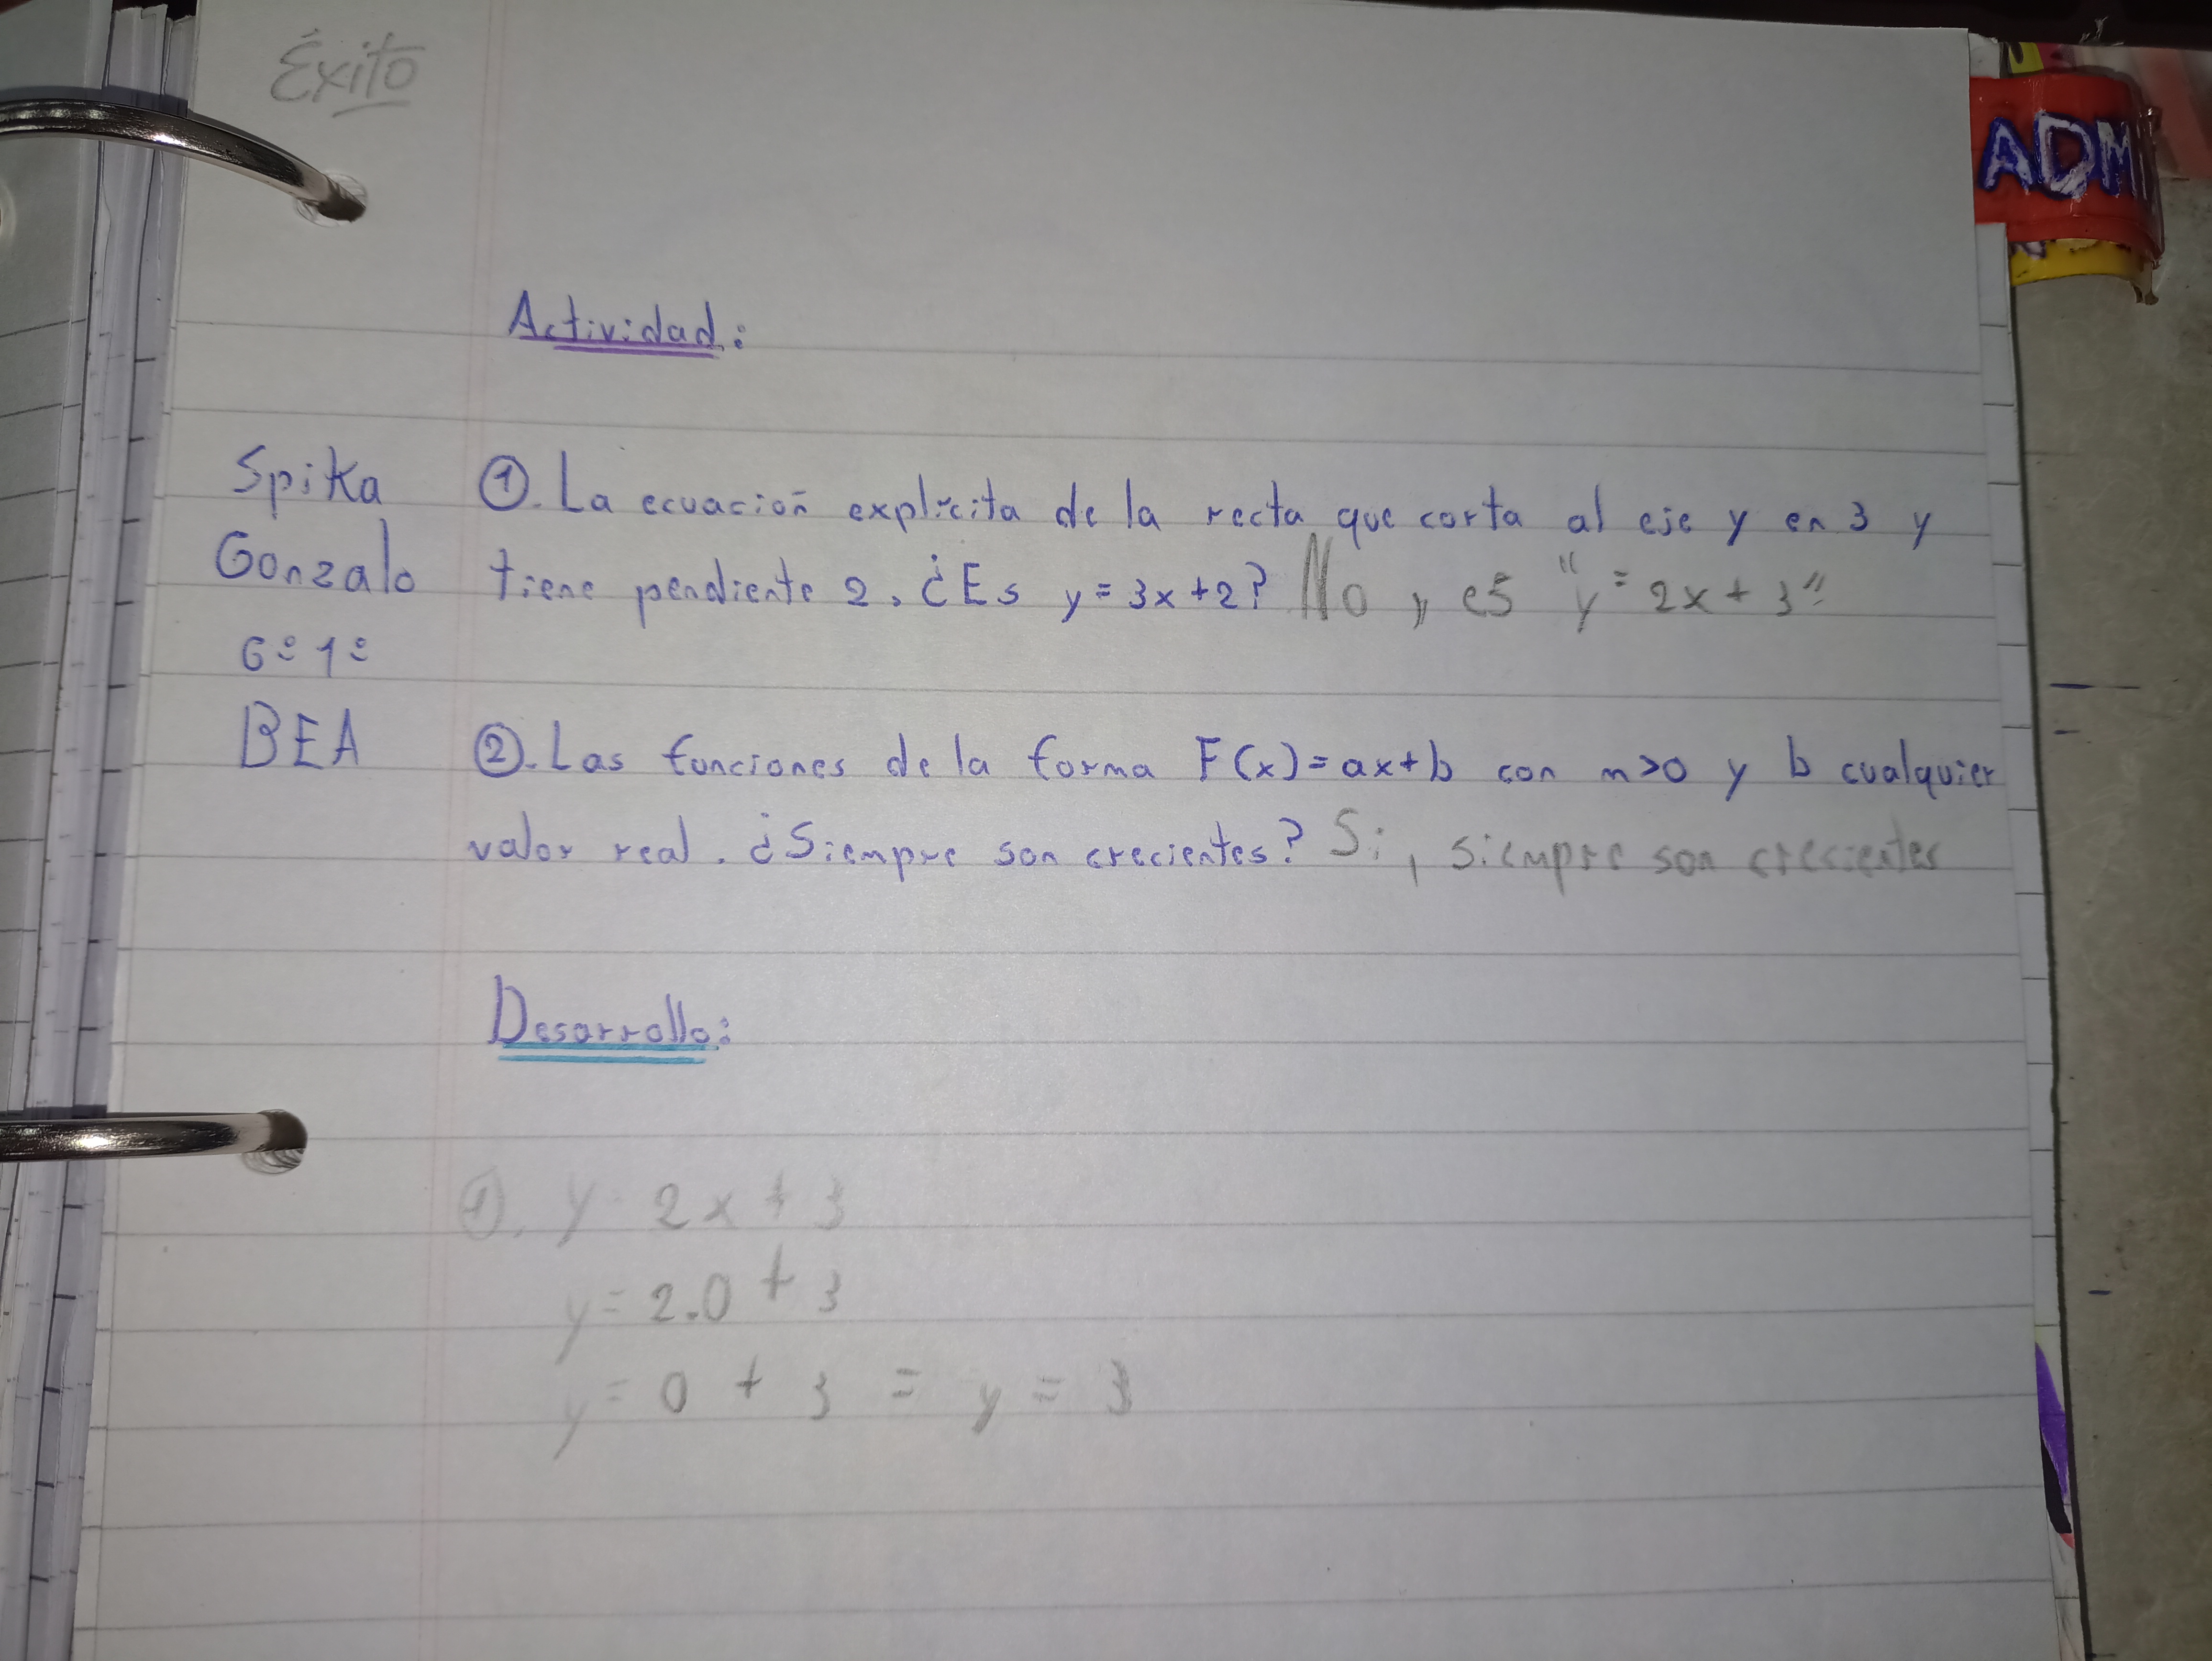 Éxito
ADM
Actividad:
Spika
Gonzalo
6º 1º
BEA
①. La ecuación explícita de la recta que corta al eje y en 3 y
tiene pendiente 2. ¿Es y = 3x + 2? No, es "y = 2x + 3"
②. Las funciones de la forma F(x) = ax + b con m > 0 y b cualquier
valor real. ¿Siempre son crecientes? Si, siempre son crecientes
Desarrollo:
①. y = 2x + 3
y = 2.0 + 3
y = 0 + 3 = y = 3